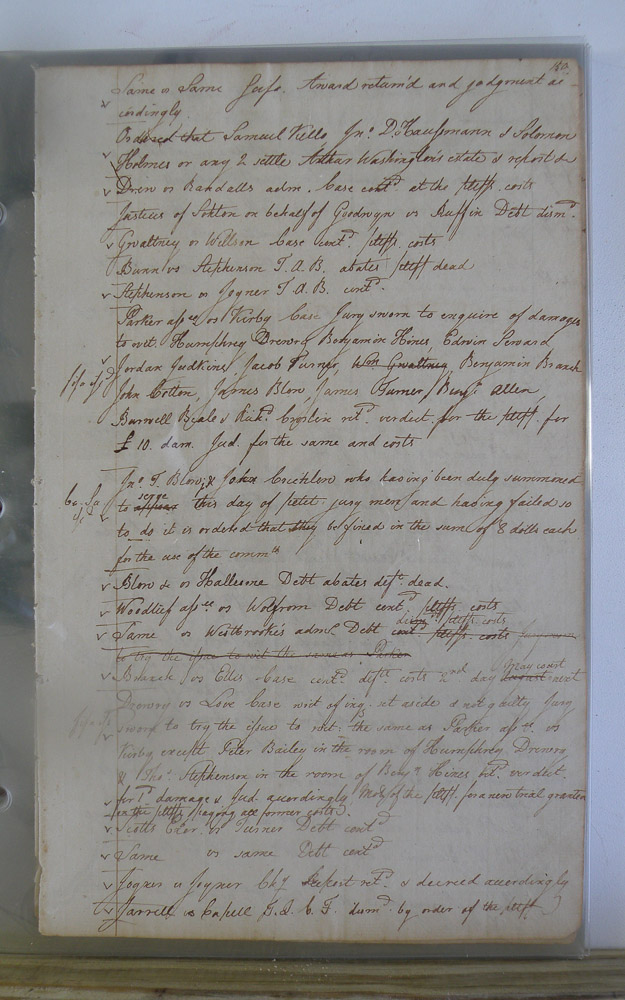 Same vs Same Scifa. Award return'd and judgment ac
cordingly.
Ordered that Samuel Kello Jnº. D. Haussmann & Solomon
Holmes or any 2 settle Arthur Washington's estate & report &c
Drew vs Randalls adm. Case contd. at the pltffs. costs
Justices of Sotton on behalf of Goodwyn vs Ruffin Debt dism.
Gwaltney vs Willson Case contd. pltffs. costs
Bunn vs Stephenson T. A. B. abates pltff dead
Stephenson vs Joyner T. A. B. contd.
Parker assee vs Kirby Case Jury sworn to enquire of damages
to wit. Humphrey Drewry Benjamin Hines, Edwin
Jordan Judkins, Jacob Turner, Wm Gwaltney, Benjamin Branch
John Cotton, James Blow, James Turner, Benj. Allen,
Burwell Beale & Richd. retd. verdict for the pltff. for
£ 10. dam. Jud. for the same and costs
Jnº. T. Blow, & John who having been duly summoned
serve
to appear this day of petit jury men and having failed so
to do it is ordered that they be fined in the sum of 8 dolls each
for the use of the commth
Blow &c vs Debt abates deft. dead.
Woodlief assee vs Wolfrom Debt contd. pltffs. costs
dism. pltffs. costs
Same vs Westbrooke's adm. Debt contd pltffs. costs Jury sworn
to try the issue to wit the same as Parker
may court
Branch vs Ellis Case contd. defts. costs 2nd day August next
Drewry vs Love Case writ of inq. set aside & not guilty Jury
sworn to try the issue to wit: the same as Parker assee. vs
Kirby except Peter Bailey in the room of Humphrey Drewry
& Thos. Stephenson in the room of Benj. Hines retd. verdict
for 1d damage & Jud. accordingly. Mo. of the pltff. for a new trial granted
on the pltffs paying all former costs.
Scotts Exor. vs Turner Debt contd
Same vs same Debt contd
Joyner vs Joyner Chy Report retd. & decreed accordingly
Jarrell vs Capell dism. by order of the pltff